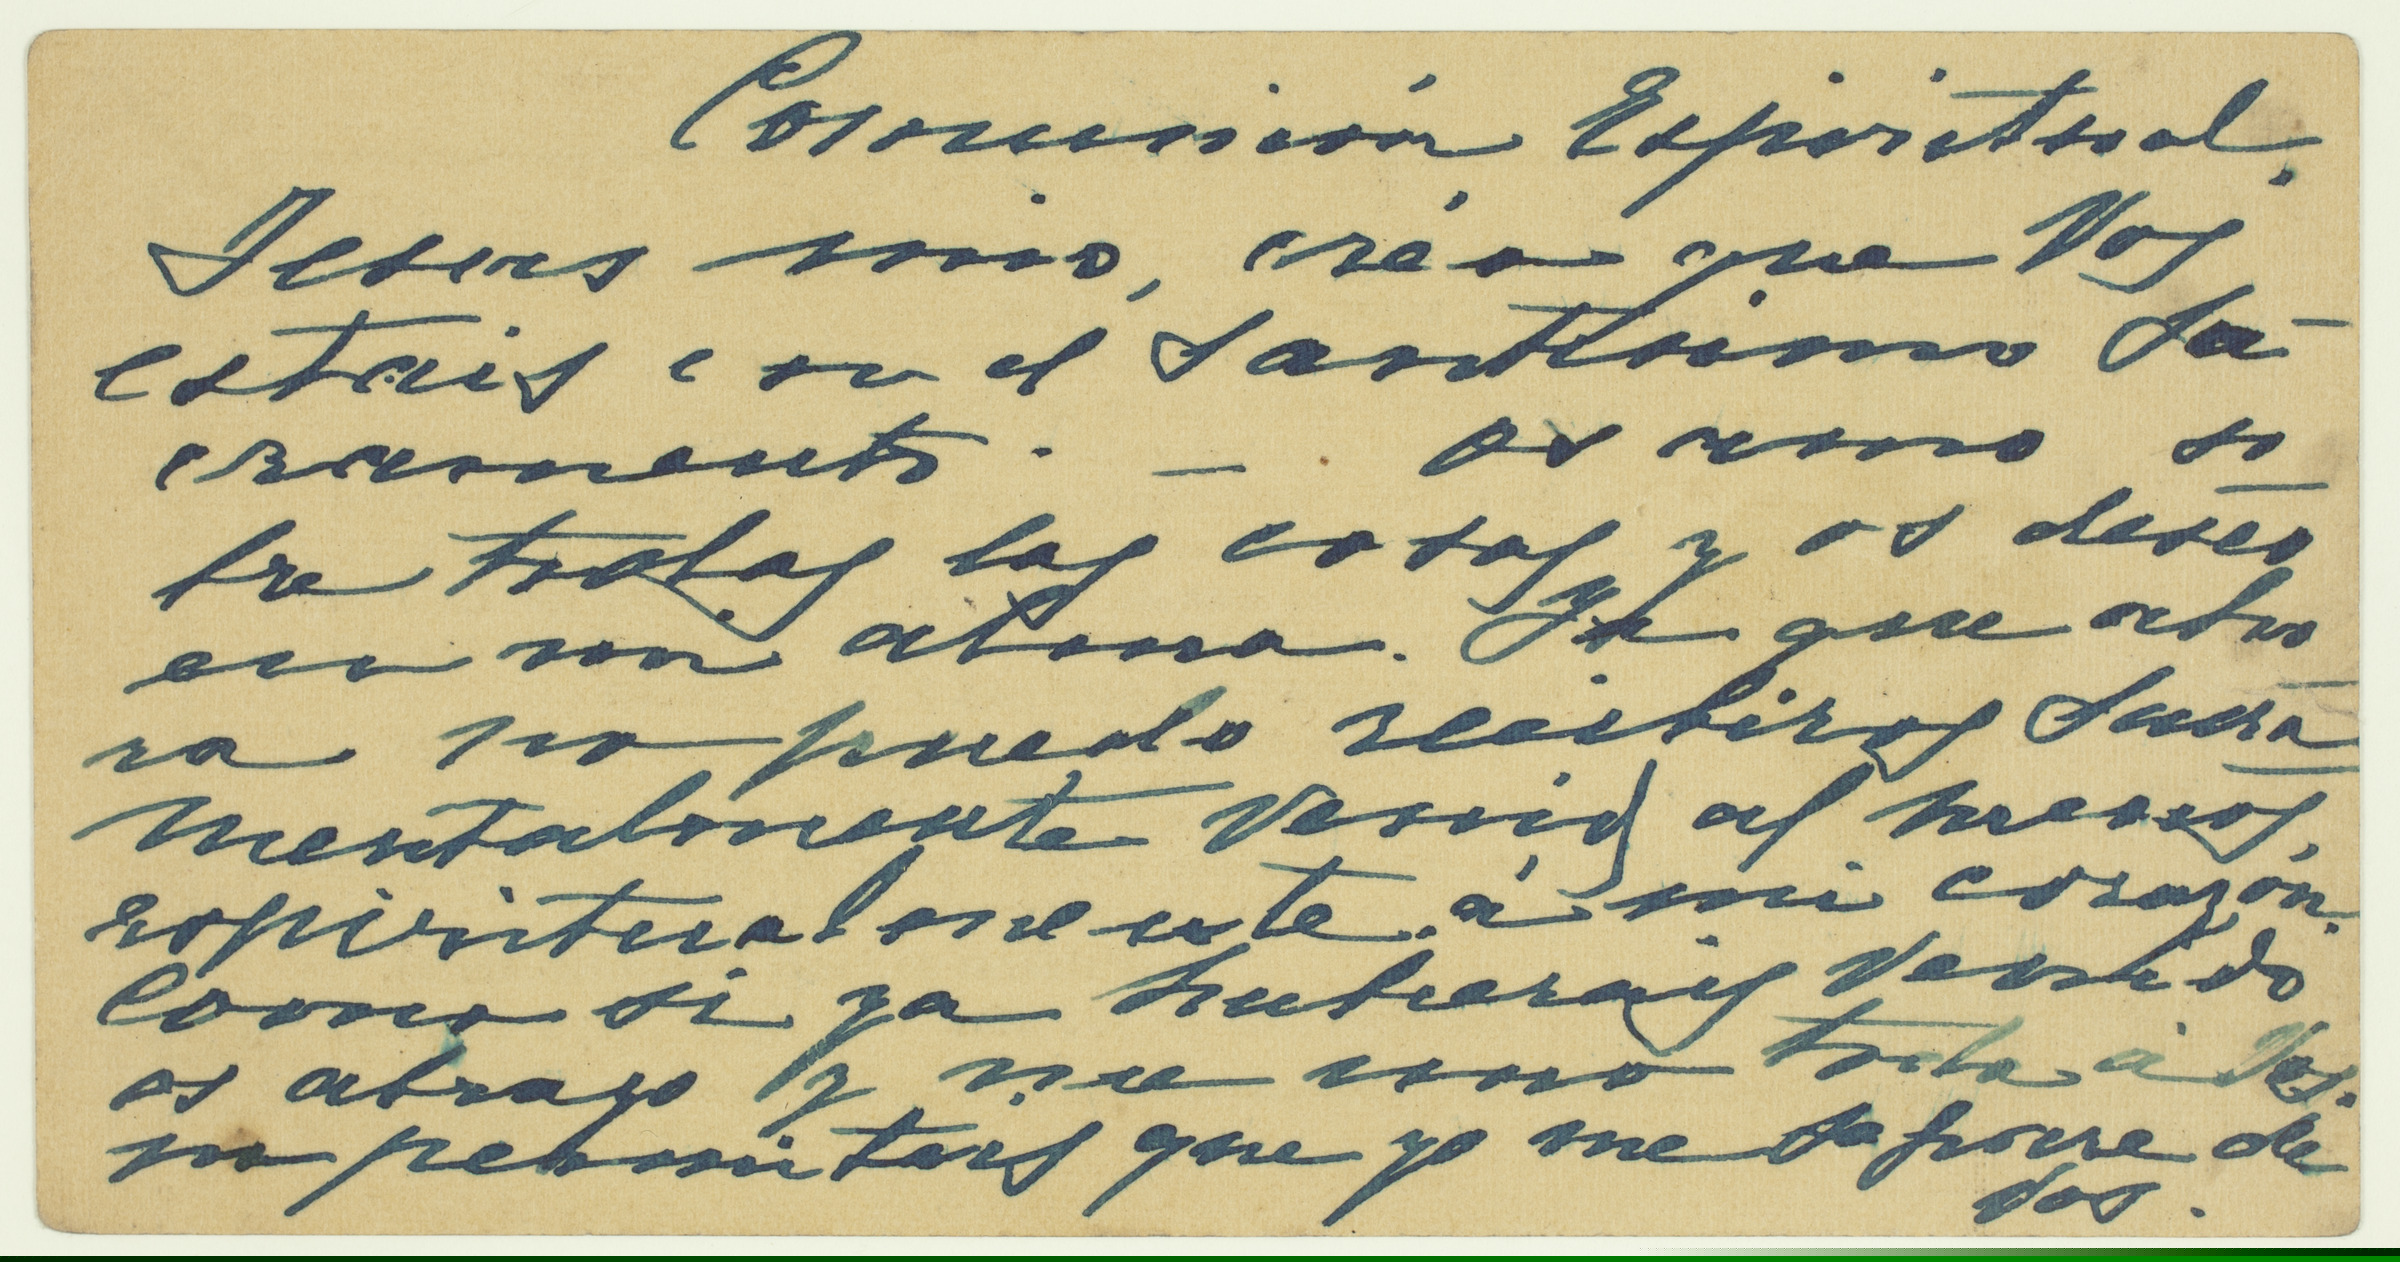 Comunión Espiritual.
Jesus mio, créo que Vos
estais en el Santisimo Sa-
cramento. — os amo so
bre todas las cosas y os deseo
en mi alma. Ya que aho
ra no puedo recibiros Sacra
mentalmente Venid al menos,
espiritualmente á mi corazón.
Como si ya hubierais Venido
os abrazo y me uno todo á Vos.
no permitais que yo me separe de
Vos.